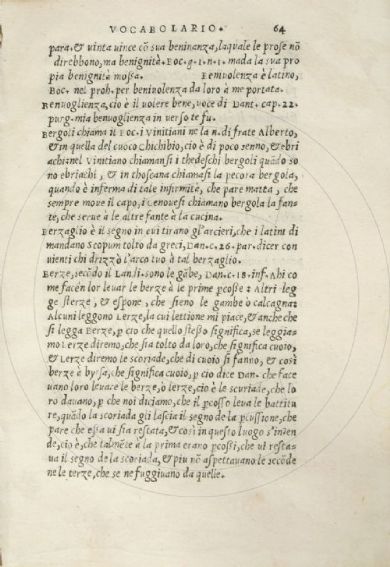 VOCABOLARIO. 64
para. & uinta uince cõ sua beninanza, laquale le prose nõ
direbbono, ma benignità. Boc. q. 1. n. 1. mada la sua pro
pia benignità mossa. Beniuolenza è latino,
Boc. nel proh. per beniuolenza da loro à me portata.
Benuoglienza, cio è il uolere bene, uoce di Dant. cap. 22.
purg. mia benuoglienza in uerso te fu.
Bergoli chiama il Boc. i Vinitiani ne la n. di frate Alberto,
& in quella del cuoco Chichibio, cio è di poco senno, & ebri
achi nel Vinitiano chiamansi i thedeschi bergoli quãdo so
no ebriachi, & in thoscana chiamasi la pecora bergola,
quando è inferma di tale infirmità, che pare matta, che
sempre moue il capo, i Genouesi chiamano bergola la fan-
te, che serue à le altre fante à la cucina.
Berzaglio è il segno in cui tirano gl'arcieri, che i latini di
mandano Scopum tolto da greci, Dan. c. 26. par. dicer con
uienti chi drizzò l'arco tuo à tal berzaglio.
Berze, secõdo il Landi. sono le gãbe, Dan. c. 18. inf. Ahi co
me facén lor leuar le berze à le prime pcosse: Altri leg
ge sferze, & espone, che sieno le gambe ò calcagna:
Alcuni leggono Lerze, la cui lettione mi piace, & anche che
si legga Berze, p cio che quello stesso significa, se leggia-
mo Lerze diremo, che sia tolto da loro, che significa cuoio,
& Lerze diremo le scoriade, che di cuoio si fanno, & cosi
berze à byrsa, che significa cuoio, p cio dice Dan. che face
uano loro leuare le berze, ò lerze, cio è le scuriade, che lo
ro dauano, p che noi diciamo, che il pcosse leua le battitu
re, quãdo la scoriada gli lascia il segno de la pcussione, che
pare che essa ui sia restata, & cosi in questo luogo s'inten
de, cio è, che talmẽte à la prima erano pcossi, che ui resta-
ua il segno de la scoriada, & piu nõ aspettauano le secõde
ne le terze, che se ne fuggiuano da quelle.